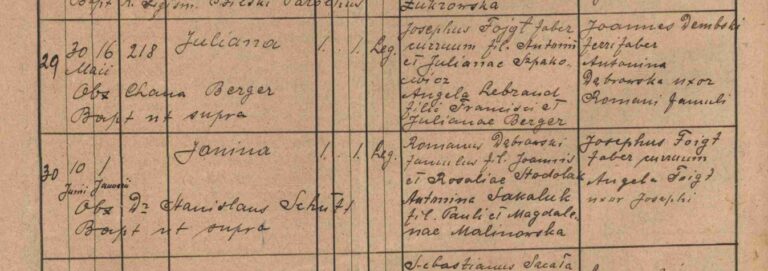 Bapt R. Zygism. Bilski Parochus
Żukrowska
29 30 16 218 Juliana 1. . 1. Leg.
Maii
Obs Chana Berger
Bapt ut supra
Josephus Foigt faber
curruum fil. Antonii
et Julianae Szpako-
wicz
Angela Lebraud
filia Francisci et
Julianae Berger
Joannes Dembski
ferrifaber
Antonina
Dąbrowska uxor
Romani famuli
30 10 1 Janina 1. . 1. Leg.
Junii Januarii
Obs Dr Stanislaus Schütt
Bapt ut supra
Romanus Dąbrowski
famulus f. l. Joannis
et Rosaliae Stodolak
Antonina Sakaluk
fil. Pauli et Magdale-
nae Malinowska
Josephus Foigt
faber curruum
Angela Foigt
uxor Josephi
Sebastianus